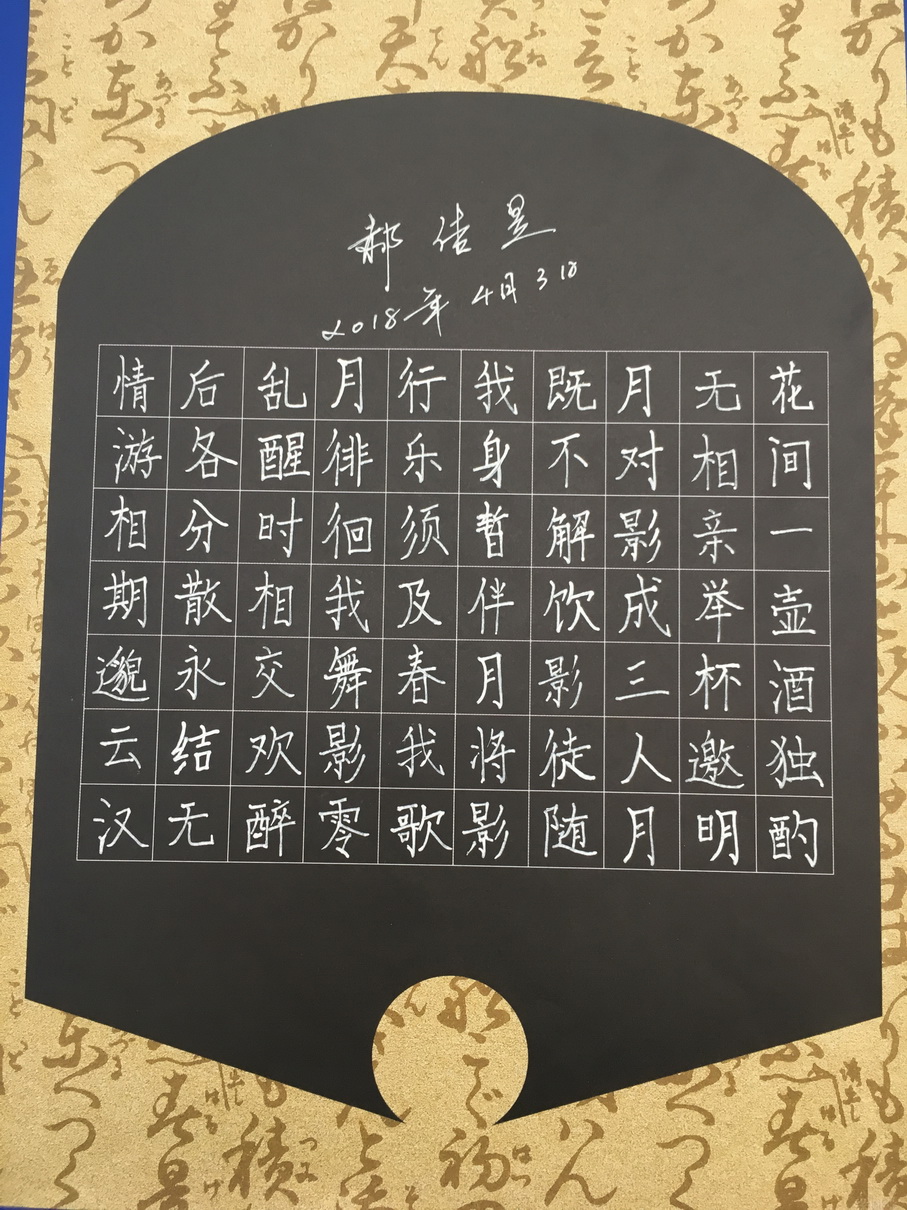 郝佶
2018年4月3日
花间一壶酒独酌
无相亲举杯邀明
月对影成三人月
既不解饮影徒随
我身暂伴月将影
行乐须及春我歌
月徘徊我舞影零
乱醒时相交欢醉
后各分散永结无
情游相期邈云汉